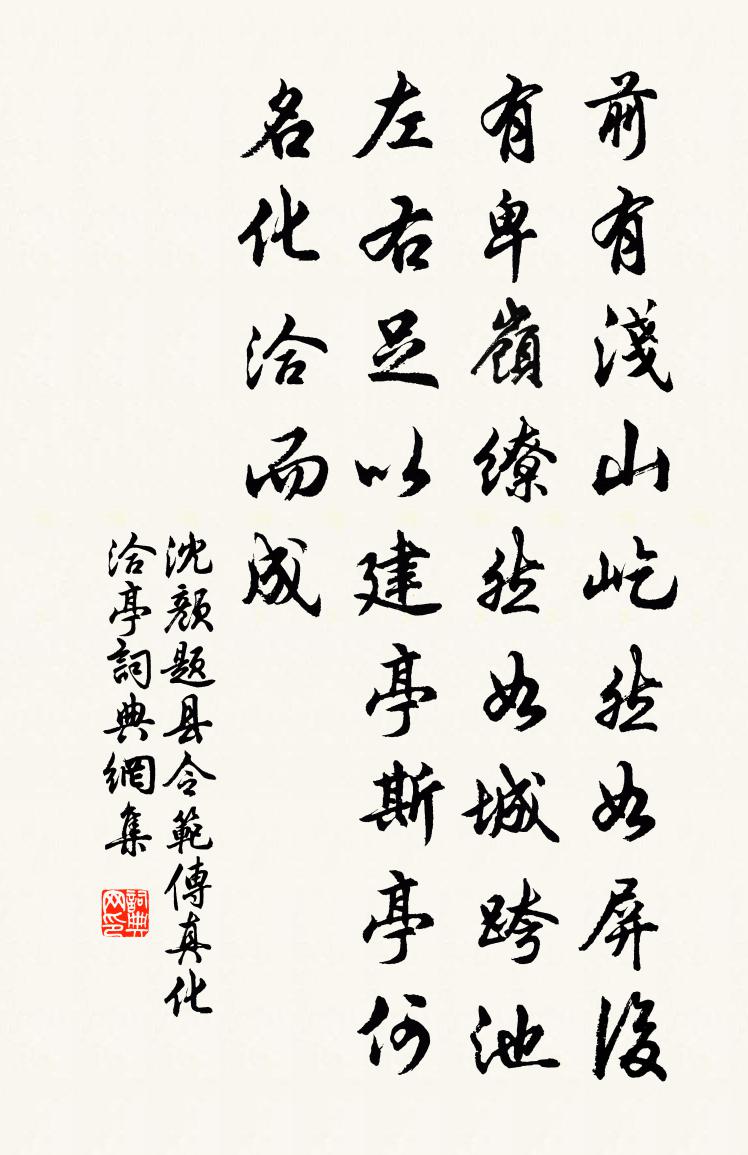 前有淺山屹然如屏後
有卑嶺繚然如城跨池
左右足以建亭斯亭何
名化洽而成
沈顏题县令範傳真化
洽亭詞典網集
詞典网印